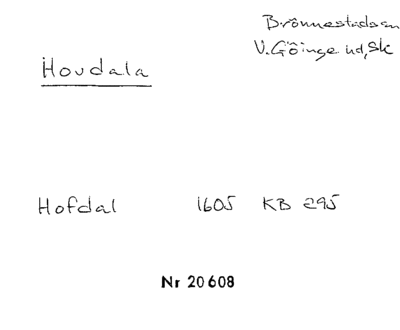 Brönnestads sn
V. Göinge hd, Sk
Hovdala
Hofdal 1605 KB 295
Nr 20608